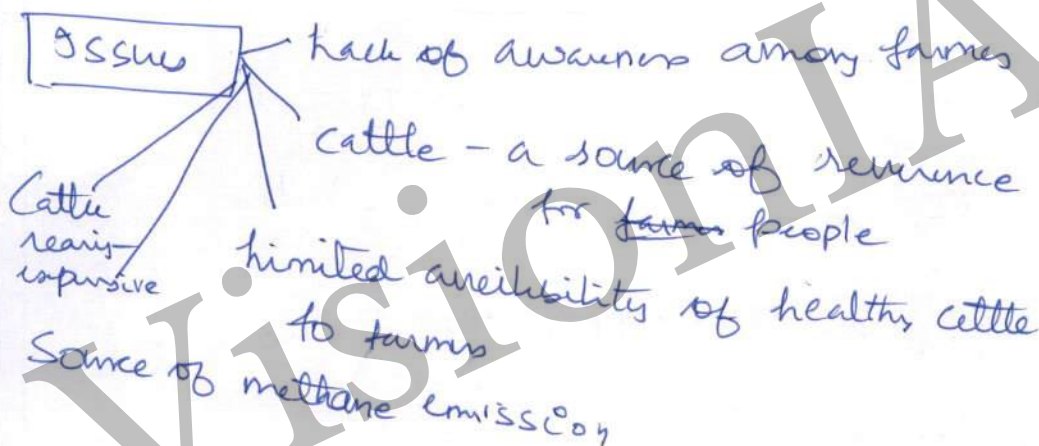 Issues
Lack of awareness among farmers
Cattle - a source of reverence
for farmers people
Cattle
rearing
expensive
Limited availability of healthy cattle
to farmers
Source of methane emission
VisionIA